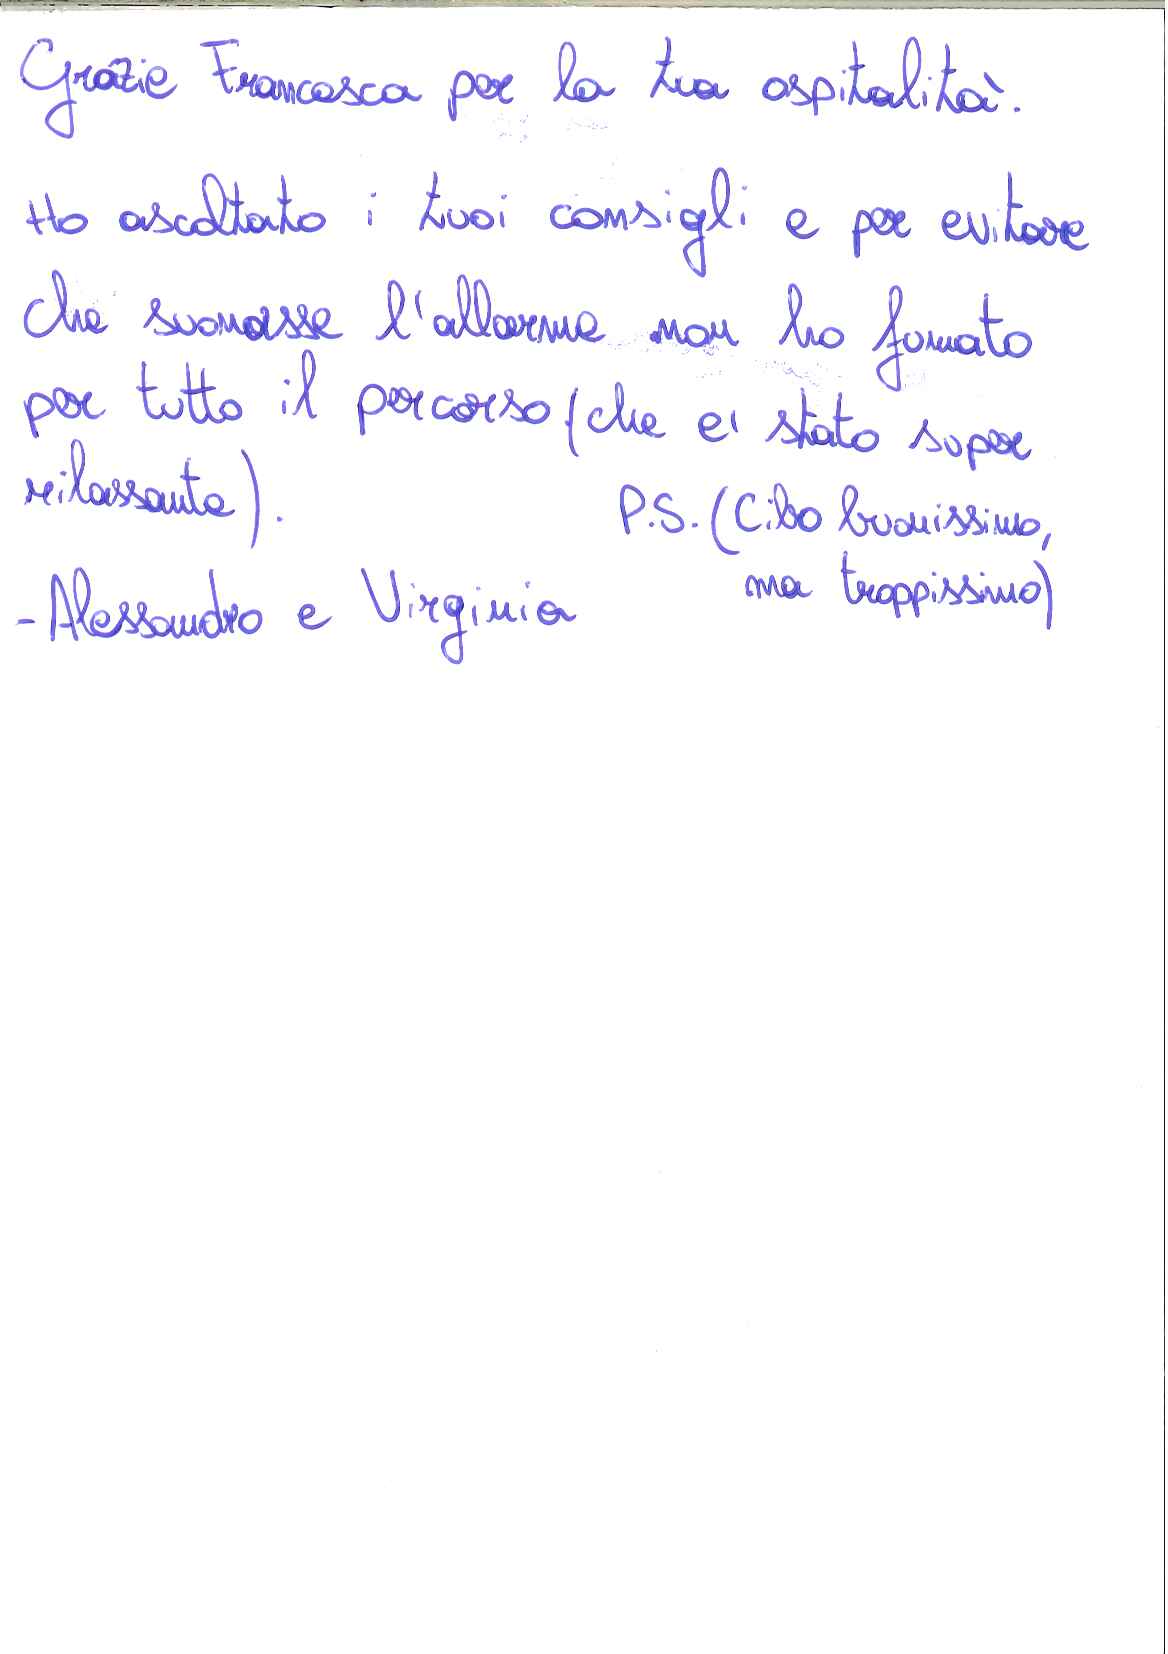 Grazie Francesca per la tua ospitalità.
Ho ascoltato i tuoi consigli e per evitare
che suonasse l'allarme non ho fumato
per tutto il percorso (che e' stato super
rilassante).
P.S. (Cibo buonissimo,
ma troppissimo)
-Alessandro e Virginia